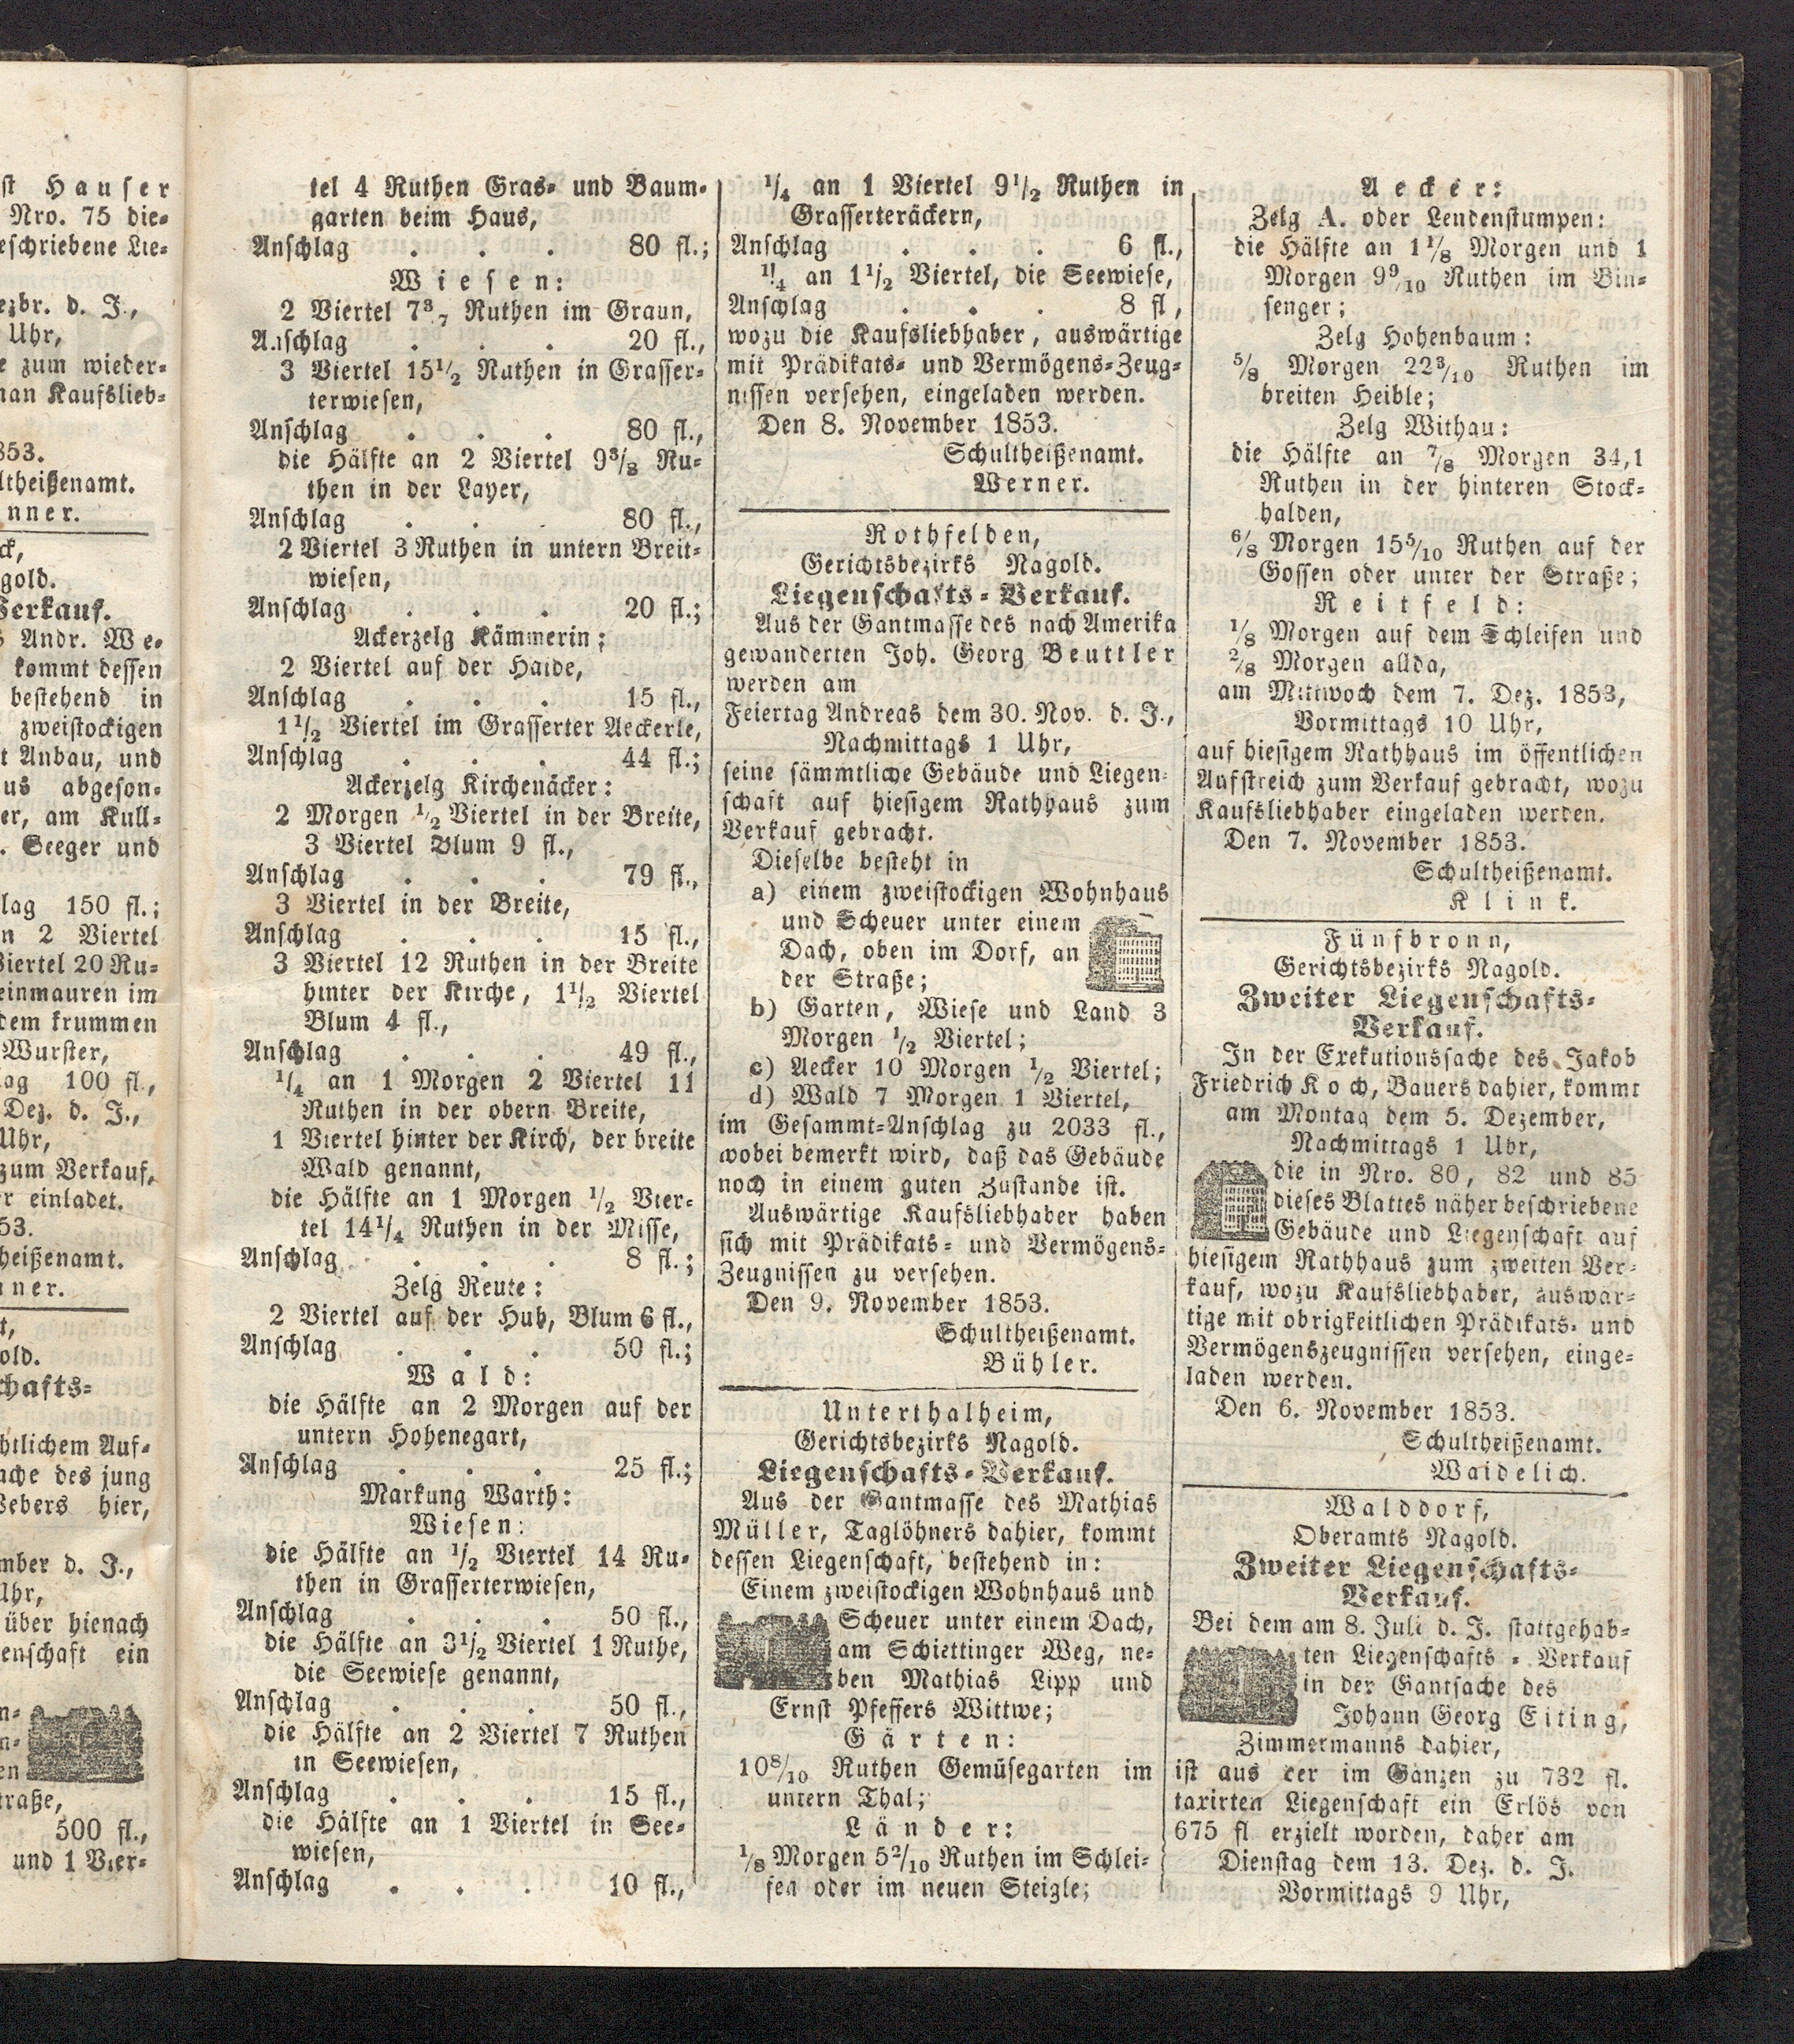 st Hauser
Nro. 75 die-
eschriebene Lie-
ezbr. d. J.,
Uhr,
e zum wieder-
man Kaufslieb-
853.
ltheißenamt.
nner.
ck,
gold.
Verkauf.
s Andr. We-
kommt dessen
bestehend in
zweistockigen
t Anbau, und
us abgeson-
er, am Kull-
. Seeger und
lag 150 fl.;
n 2 Viertel
Viertel 20 Ru-
einmauren im
dem krummen
Wurster,
ag 100 fl.,
Dez. d. J.,
Uhr,
zum Verkauf,
r einladet.
53.
heißenamt.
nner.
t,
old.
chafts-
htlichem Auf-
ache des jung
Webers hier,
mber d. J.,
Uhr,
über hienach
enschaft ein
n-
n-
en
traße,
500 fl.,
und 1 Vier-
tel 4 Ruthen Gras- und Baum-
garten beim Haus,
Anschlag . . . 80 fl.;
Wiesen:
2 Viertel 7 3/7 Ruthen im Graun,
Anschlag . . . 20 fl.,
3 Viertel 15 1/2 Ruthen in Grasser-
terwiesen,
Anschlag . . . 80 fl.,
die Hälfte an 2 Viertel 9 3/8 Ru-
then in der Layer,
Anschlag . . . 80 fl.,
2 Viertel 3 Ruthen in untern Breit-
wiesen,
Anschlag . . . 20 fl.;
Ackerzelg Kämmerin:
2 Viertel auf der Haide,
Anschlag . . . 15 fl.,
1 1/2 Viertel im Grasserter Aeckerle,
Anschlag . . . 44 fl.;
Ackerzelg Kirchenäcker:
2 Morgen 1/2 Viertel in der Breite,
3 Viertel Blum 9 fl.,
Anschlag . . . 79 fl.,
3 Viertel in der Breite,
Anschlag . . . 15 fl.,
3 Viertel 12 Ruthen in der Breite
hinter der Kirche, 1 1/2 Viertel
Blum 4 fl.,
Anschlag . . . 49 fl.,
1/4 an 1 Morgen 2 Viertel 11
Ruthen in der obern Breite,
1 Viertel hinter der Kirch, der breite
Wald genannt,
die Hälfte an 1 Morgen 1/2 Vier-
tel 14 1/4 Ruthen in der Misse,
Anschlag . . . 8 fl.;
Zelg Reute:
2 Viertel auf der Hub, Blum 6 fl.,
Anschlag . . . 50 fl.;
Wald:
die Hälfte an 2 Morgen auf der
untern Hohenegart,
Anschlag . . . 25 fl.;
Markung Warth:
Wiesen:
die Hälfte an 1/2 Viertel 14 Ru-
then in Grasserterwiesen,
Anschlag . . . 50 fl.,
die Hälfte an 3 1/2 Viertel 1 Ruthe,
die Seewiese genannt,
Anschlag . . . 50 fl.,
die Hälfte an 2 Viertel 7 Ruthen
in Seewiesen,
Anschlag . . . 15 fl.,
die Hälfte an 1 Viertel in See-
wiesen,
Anschlag . . . 10 fl.,
1/4 an 1 Viertel 9 1/2 Ruthen in
Grasserteräckern,
Anschlag . . . 6 fl.,
1/4 an 1 1/2 Viertel, die Seewiese,
Anschlag . . . 8 fl,
wozu die Kaufsliebhaber, auswärtige
mit Prädikats- und Vermögens-Zeug-
nissen versehen, eingeladen werden.
Den 8. November 1853.
Schultheißenamt.
Werner.
Rothfelden,
Gerichtsbezirks Nagold.
Liegenschafts-Verkauf.
Aus der Gantmasse des nach Amerika
gewanderten Joh. Georg Beuttler
werden am
Feiertag Andreas dem 30. Nov. d. J.,
Nachmittags 1 Uhr,
seine sämmtliche Gebäude und Liegen-
schaft auf hiesigem Rathhaus zum
Verkauf gebracht.
Dieselbe besteht in
a) einem zweistockigen Wohnhaus
und Scheuer unter einem
Dach, oben im Dorf, an
der Straße;
b) Garten, Wiese und Land 3
Morgen 1/2 Viertel;
c) Aecker 10 Morgen 1/2 Viertel;
d) Wald 7 Morgen 1 Viertel,
im Gesammt-Anschlag zu 2033 fl.,
wobei bemerkt wird, daß das Gebäude
noch in einem guten Zustande ist.
Auswärtige Kaufsliebhaber haben
sich mit Prädikats- und Vermögens-
Zeugnissen zu versehen.
Den 9. November 1853.
Schultheißenamt.
Bühler.
Unterthalheim,
Gerichtsbezirks Nagold.
Liegenschafts-Verkauf.
Aus der Gantmasse des Mathias
Müller, Taglöhners dahier, kommt
dessen Liegenschaft, bestehend in:
Einem zweistockigen Wohnhaus und
Scheuer unter einem Dach,
am Schiettinger Weg, ne-
ben Mathias Lipp und
Ernst Pfeffers Wittwe;
Gärten:
10 8/10 Ruthen Gemüsegarten im
untern Thal;
Länder:
1/8 Morgen 5 2/10 Ruthen im Schlei-
fen oder im neuen Steigle;
Aecker:
Zelg A. oder Lendenstumpen:
die Hälfte an 1 1/8 Morgen und 1
Morgen 9 9/10 Ruthen im Bin-
senger;
Zelg Hohenbaum:
5/8 Morgen 22 3/10 Ruthen im
breiten Heible;
Zelg Withau:
die Hälfte an 7/8 Morgen 34,1
Ruthen in der hinteren Stock-
halden,
6/8 Morgen 15 5/10 Ruthen auf der
Gossen oder unter der Straße;
Reitfeld:
1/8 Morgen auf dem Schleifen und
2/8 Morgen allda,
am Mittwoch dem 7. Dez. 1853,
Vormittags 10 Uhr,
auf hiesigem Rathhaus im öffentlichen
Aufstreich zum Verkauf gebracht, wozu
Kaufsliebhaber eingeladen werden.
Den 7. November 1853.
Schultheißenamt.
Klink.
Fünfbronn,
Gerichtsbezirks Nagold.
Zweiter Liegenschafts-
Verkauf.
In der Exekutionssache des Jakob
Friedrich Koch, Bauers dahier, kommt
am Montag dem 5. Dezember,
Nachmittags 1 Uhr,
die in Nro. 80, 82 und 85
dieses Blattes näher beschriebene
Gebäude und Liegenschaft auf
hiesigem Rathhaus zum zweiten Ver-
kauf, wozu Kaufsliebhaber, auswär-
tige mit obrigkeitlichen Prädikats- und
Vermögenszeugnissen versehen, einge-
laden werden.
Den 6. November 1853.
Schultheißenamt.
Waidelich.
Walddorf,
Oberamts Nagold.
Zweiter Liegenschafts-
Verkauf.
Bei dem am 8. Juli d. J. stattgehab-
ten Liegenschafts-Verkauf
in der Gantsache des
Johann Georg Eiting,
Zimmermanns dahier,
ist aus der im Ganzen zu 732 fl.
taxirten Liegenschaft ein Erlös von
675 fl erzielt worden, daher am
Dienstag dem 13. Dez. d. J.
Vormittags 9 Uhr,